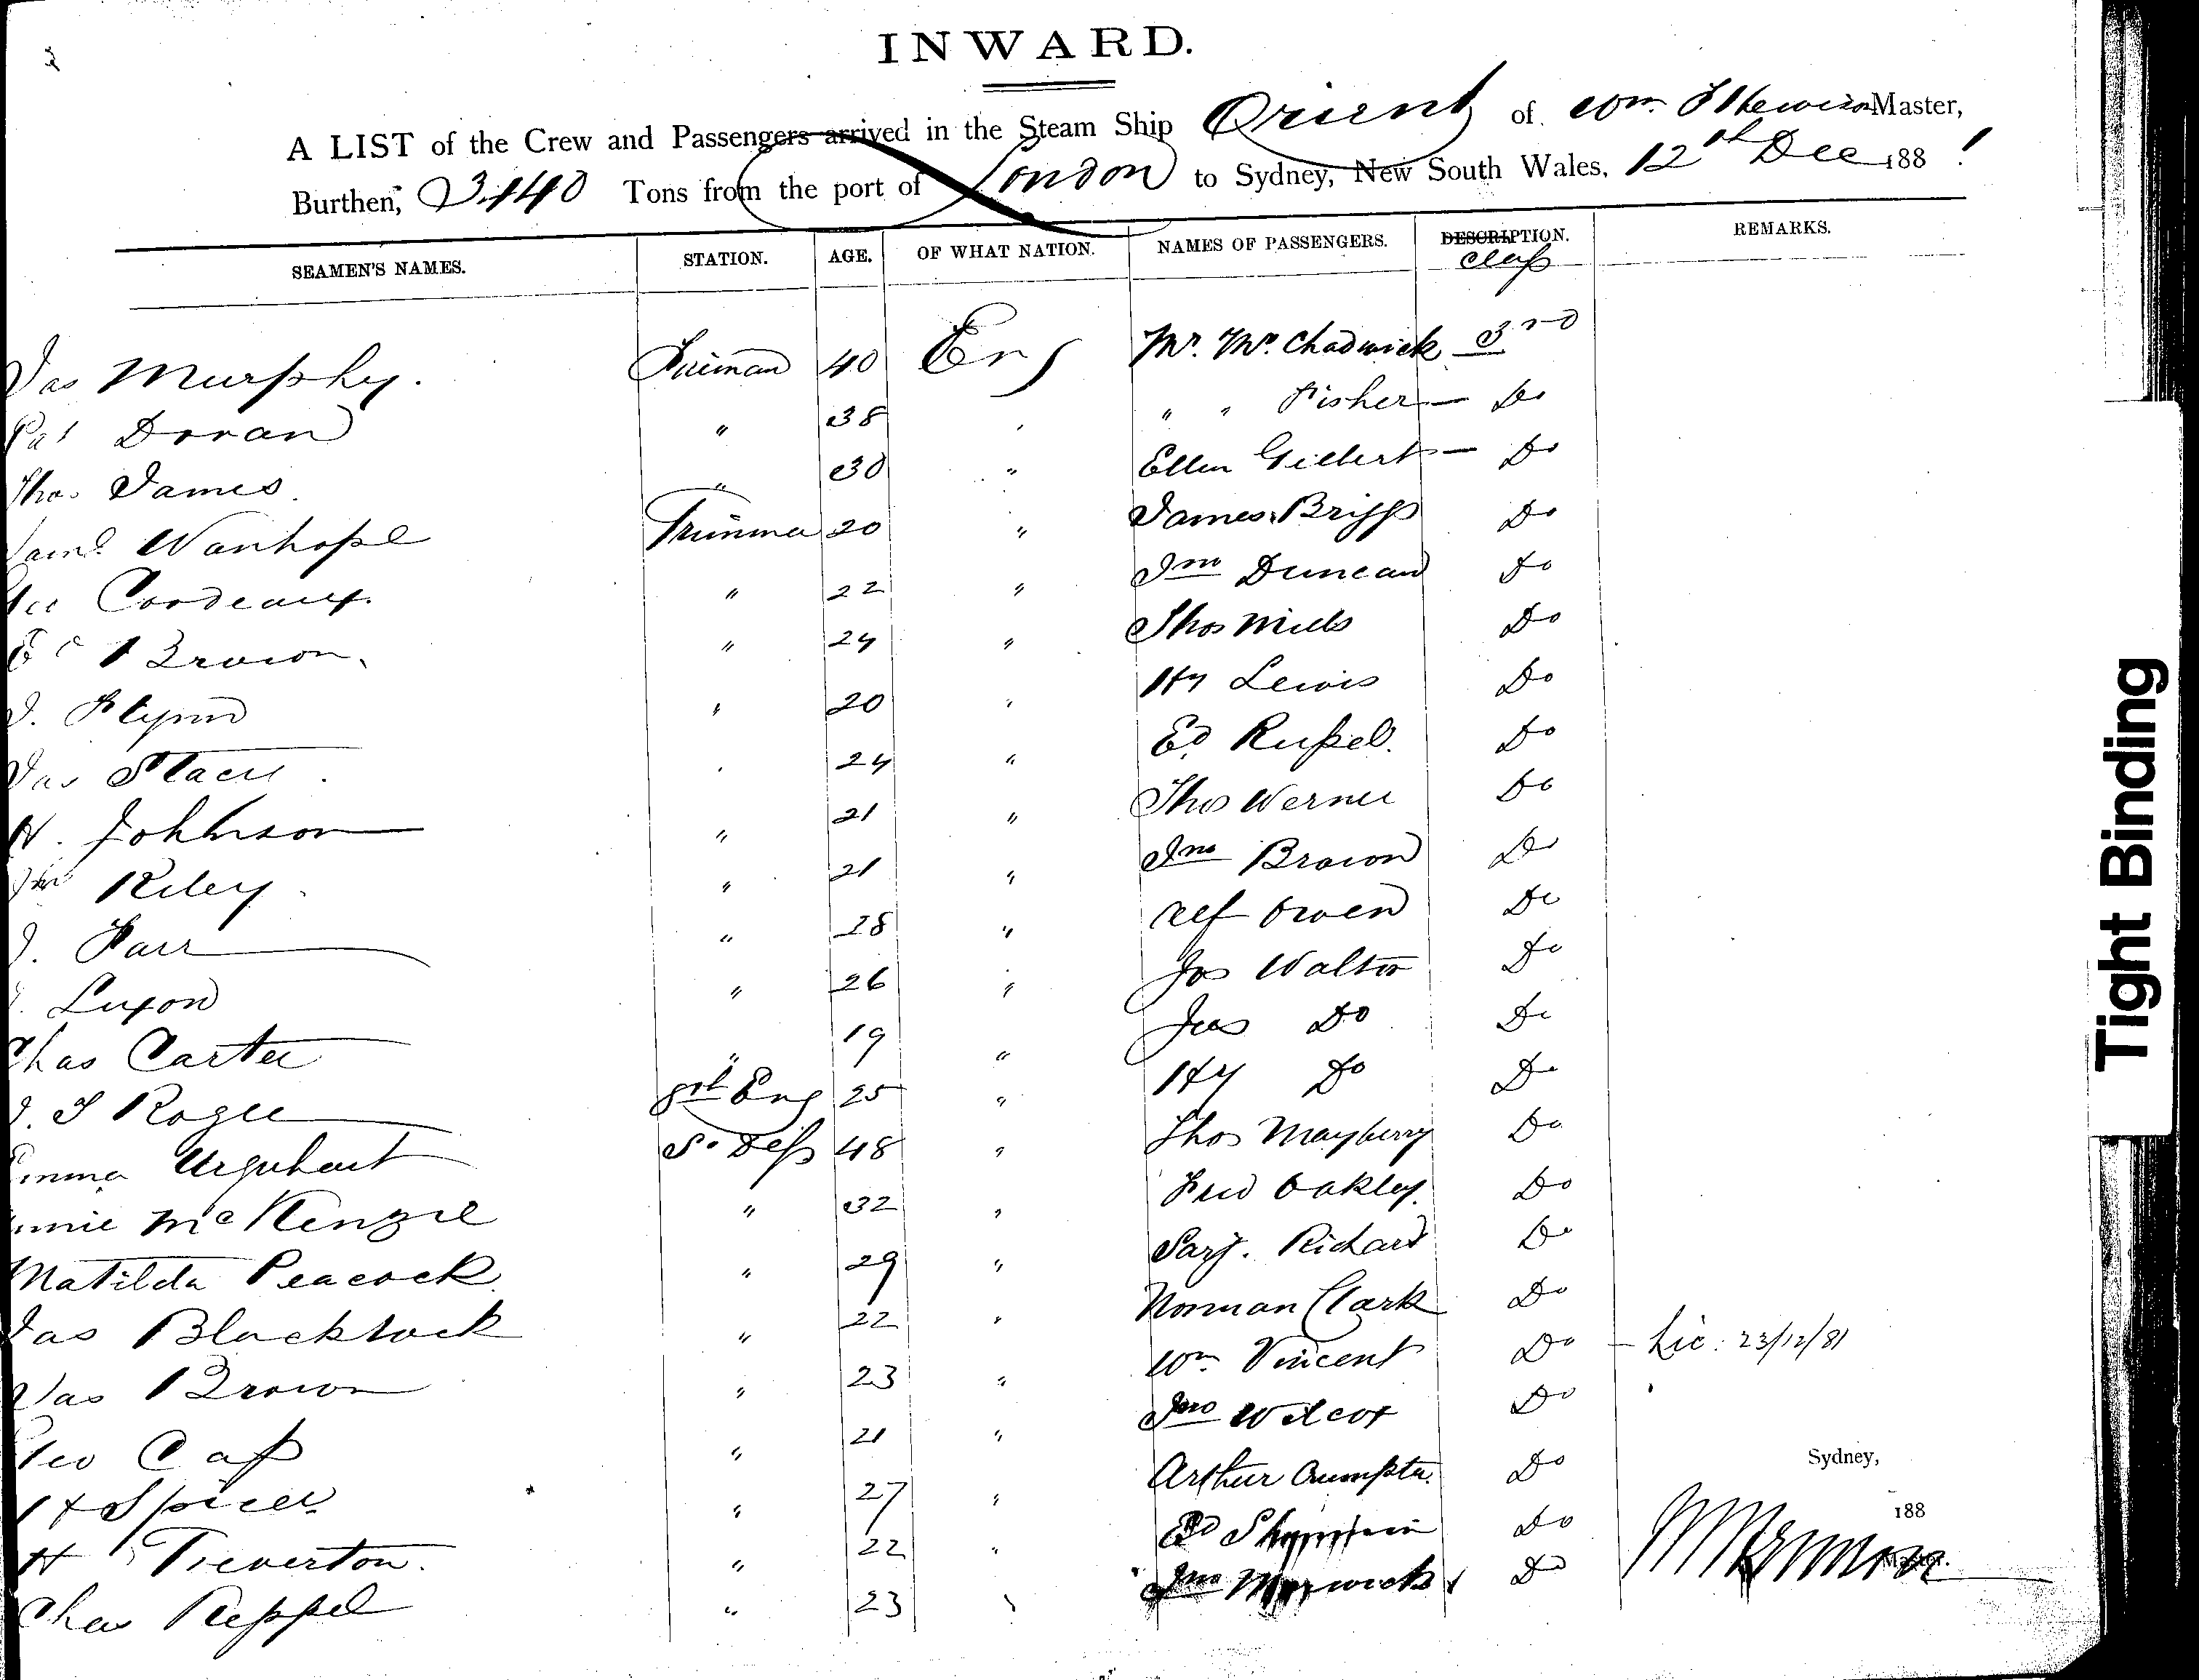 INWARD.
A LIST of the Crew and Passengers arrived in the Steam Ship Orient of Wm Master,
Burthen, 3440 Tons from the port of London to Sydney, New South Wales, 12th Dec 1881
SEAMEN'S NAMES. STATION. AGE. OF WHAT NATION. NAMES OF PASSENGERS. DESCRIPTION. REMARKS.
Class
Jas Murphy. Fireman 40 Eng Mr. Mrs. Chadwick 3rd
Pat Doran " 38 " " " Fisher — Do
Thos James " 30 " Ellen Gilbert — Do
Saml Wanhope Trimmer 20 " James Briggs Do
Geo Cordeaux. " 22 " Jno Duncan Do
Brown. " 24 " Thos Mills Do
J. Flynn " 20 " Hy Lewis Do
Jas Stacu " 24 " Ed Russel. Do
Johnson " 21 " Thos Werner Do
Riley " 21 " Jno Brown Do
J. Farr " 28 " Alf Owen Do
Luxon " 26 " Jos Walter Do
Chas Carter " 19 " Jas Do Do
Eng 25 " Hy Do Do
Emma Urquhart 48 " Thos Mayberry Do
McKenzie " 32 " Fred Oakley. Do
Matilda Peacock. " 29 " Sarj. Richard Do
Jas Blackstock " 22 " Norman Clark Do
Jas Brown " 23 " Wm Vincent Do — Lic: 23/12/81
Geo Cass " 21 " Jno Wilcox Do
H Spicer " 27 " Arthur Do
H Tiverton. " 22 " Ed Do
Chas Keppel " 23 " Jno Do
Sydney,
188
Master.
Tight Binding